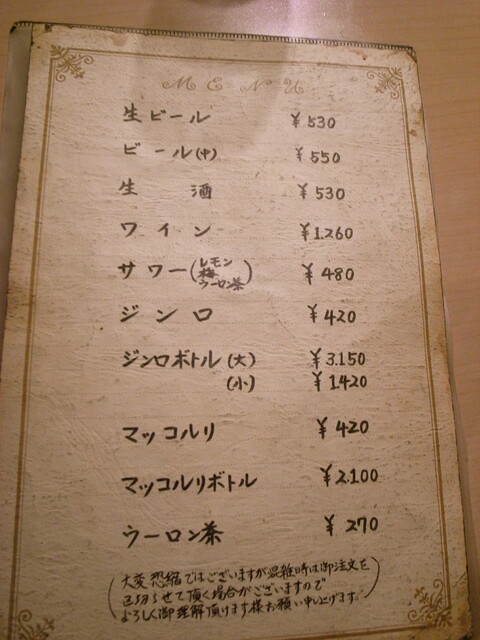 MENU
生ビール ¥530
ビール(中) ¥550
生酒 ¥530
ワイン ¥1.260
サワー(レモン 梅 ウーロン茶) ¥480
ジンロ ¥420
ジンロボトル(大) ¥3.150
(小) ¥1.420
マッコルリ ¥420
マッコルリボトル ¥2.100
ウーロン茶 ¥270
(大変恐縮ではございますが混雑時は御注文を
区切らせて頂く場合がございますので
よろしく御理解頂けます様お願い申し上げます。)